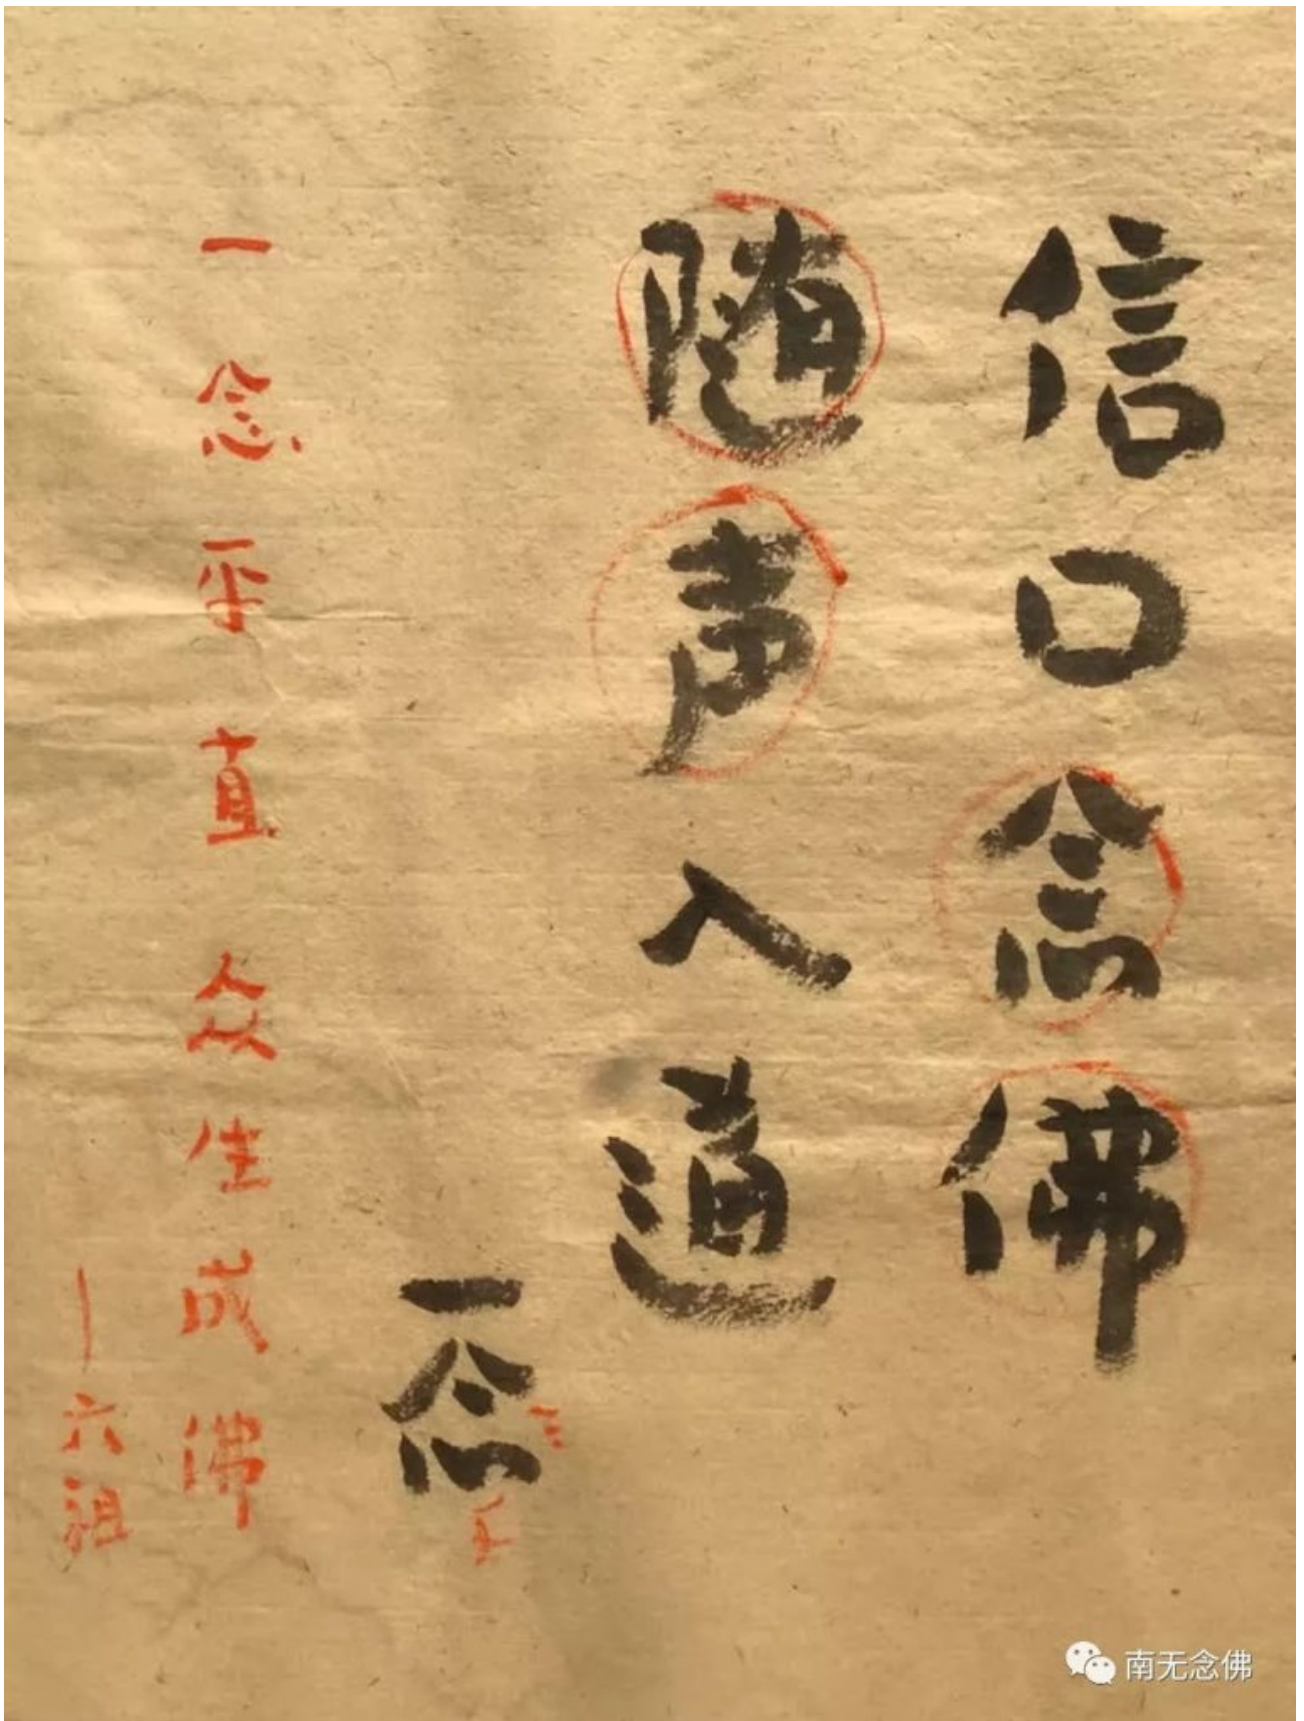 信口念佛
随声入道
一念
三千
一念平直众生成佛
——六祖
南无念佛